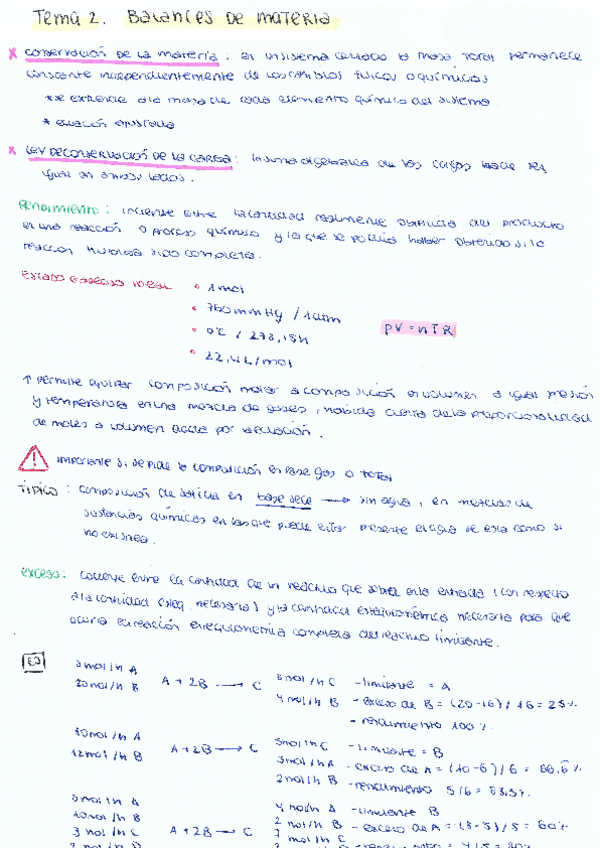 Tema 2. Balances de materia
* Conservación de la materia: en un sistema cerrado la masa total permanece
constante independientemente de los cambios físicos o químicos
*se extiende a la masa de cada elemento químico del sistema
* ecuación ajustada
* Ley de conservación de la carga: la suma algebraica de las cargas debe ser
igual en ambos lados.
Rendimiento: cociente entre la cantidad realmente obtenida del producto
en una reacción o proceso químico y la que se podría haber obtenido si la
reacción hubiese sido completa.
Estado gaseoso ideal • 1 mol
• 760mmHg / 1atm
• 0°C / 273,15K
• 22,4L/mol
PV=nTR
↑ Permite equiparar composición molar a composición en volumen a igual presión
y temperatura en una mezcla de gases, habida cuenta de la proporcionalidad
de moles a volumen dada por la ecuación.
Importante si se pide la composición en base gas o total
Típico: composición de salida en base seca → sin agua, en mezclas de
sustancias químicas en las que puede estar presente el agua se está como si
no existiera.
exceso: cociente entre la cantidad de un reactivo que sobra en la entrada (con respecto
a la cantidad esteq. necesaria) y la cantidad estequiométrica necesaria para que
ocurra la reacción estequiométrica completa del reactivo limitante.
EJ
8 mol/h A
20 mol/h B
A + 2B → C
8 mol/h C - limitante = A
4 mol/h B - exceso de B = (20-16)/16 = 25%
- rendimiento 100%
10 mol/h A
12 mol/h B
A + 2B → C
5 mol/h C - limitante = B
5 mol/h A - exceso de A = (10-6)/6 = 66,6%
2 mol/h B - rendimiento 5/6 = 83,3%
8 mol/h A
10 mol/h B
3 mol/h C
A + 2B → C
4 mol/h A - limitante B
2 mol/h B - exceso de A = (8-5)/5 = 60%
7 mol/h C - rendimiento = 4/5 = 80%